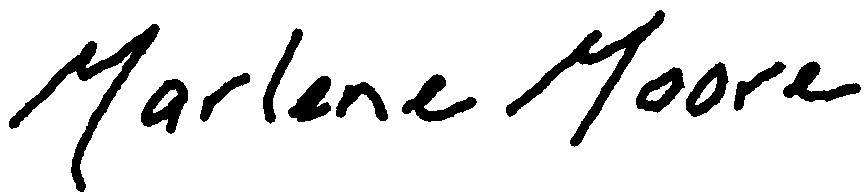 Marlene Moore